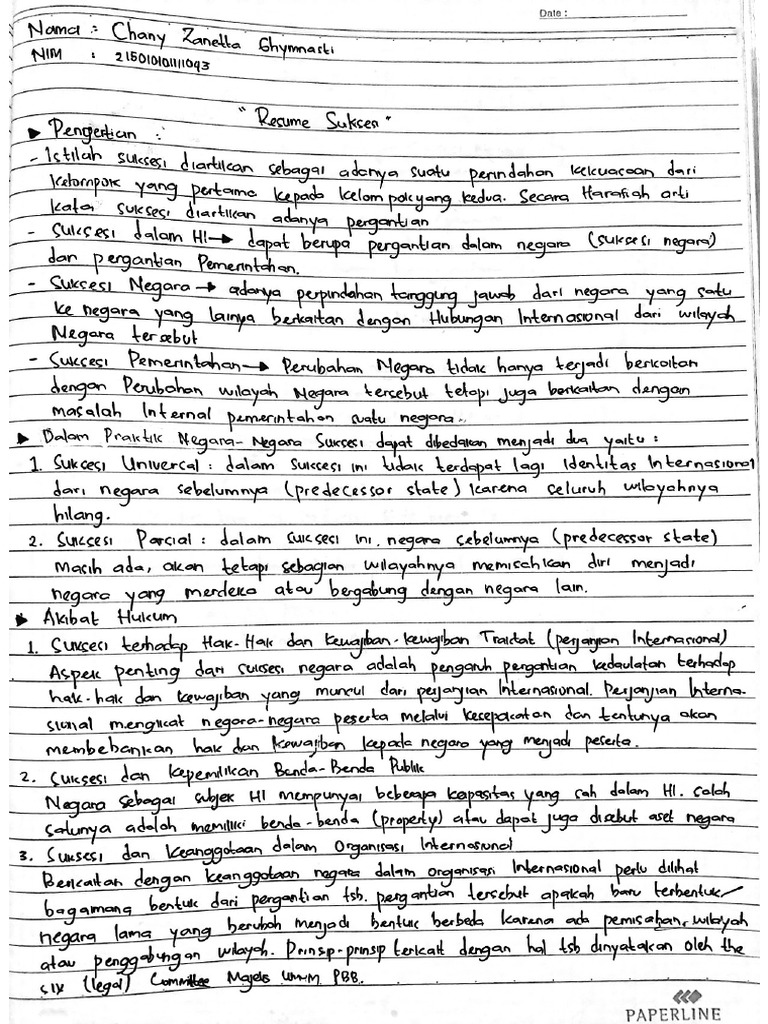 Date :
Nama : Chany Zanetta Ghymnasti
NIM : 215010101111093
"Resume Suksesi"
▶ Pengertian :
- Istilah suksesi diartikan sebagai adanya suatu perindahan kekuasaan dari
kelompok yang pertama kepada kelompok yang kedua. Secara Harafiah arti
kata suksesi diartikan adanya pergantian
- Suksesi dalam HI → dapat berupa pergantian dalam negara (suksesi negara)
dan pergantian Pemerintahan.
- Suksesi Negara → adanya perpindahan tanggung jawab dari negara yang satu
ke negara yang lainya berkaitan dengan Hubungan Internasional dari wilayah
Negara tersebut
- Suksesi Pemerintahan → Perubahan Negara tidak hanya terjadi berkaitan
dengan Perubahan wilayah Negara tersebut tetapi juga berkaitan dengan
masalah Internal pemerintahan suatu negara..
▶ Dalam Praktik Negara-Negara Suksesi dapat dibedakan menjadi dua yaitu :
1. Suksesi Universal : dalam suksesi ini tidak terdapat lagi Identitas Internasional
dari negara sebelumnya (predecessor state) karena seluruh wilayahnya
hilang.
2. Suksesi Parsial : dalam suksesi ini, negara sebelumnya (predecessor state)
Masih ada, akan tetapi sebagian wilayahnya memisahkan diri menjadi
negara yang merdeka atau bergabung dengan negara lain.
▶ Akibat Hukum
1. Suksesi terhadap Hak-Hak dan Kewajiban-kewajiban Traktat (perjanjian Internasional)
Aspek penting dari suksesi negara adalah pengaruh pergantian kedaulatan terhadap
hak-hak dan kewajiban yang muncul dari perjanjian Internasional. Perjanjian Interna-
sional mengikat negara-negara peserta melalui kesepakatan dan tentunya akan
membebankan hak dan kewajiban kepada negara yang menjadi peserta.
2. Suksesi dan kepemilikan Benda-Benda Publik
Negara sebagai subjek HI mempunyai beberapa kapasitas yang sah dalam HI. salah
satunya adalah memiliki benda-benda (property) atau dapat juga disebut aset negara
3. Suksesi dan keanggotaan dalam Organisasi Internasional
Berkaitan dengan keanggotaan negara dalam organisasi Internasional perlu dilihat
bagamana bentuk dari pergantian tsb. pergantian tersebut apakah baru terbentuk/
negara lama yang berubah menjadi bentuk berbeda karena ada pemisahan wilayah
atau penggabungan wilayah. Prinsip-prinsip terkait dengan hal tsb dinyatakan oleh the
six (legal) Committee Majelis Umum PBB.
PAPERLINE